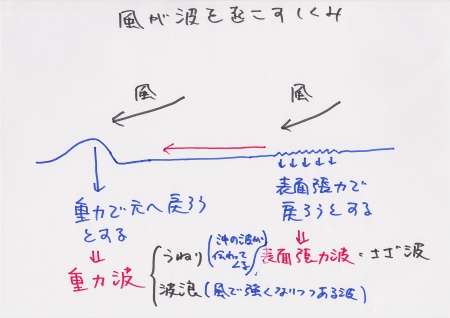 風が波を起こすしくみ
風
風
重力で元へ戻ろう
とする
⇓
重力波
うねり(沖の波が
伝わって
くる)
波浪(風で強くなりつつある波)
表面張力で
戻ろうとする
⇓
表面張力波=さざ波